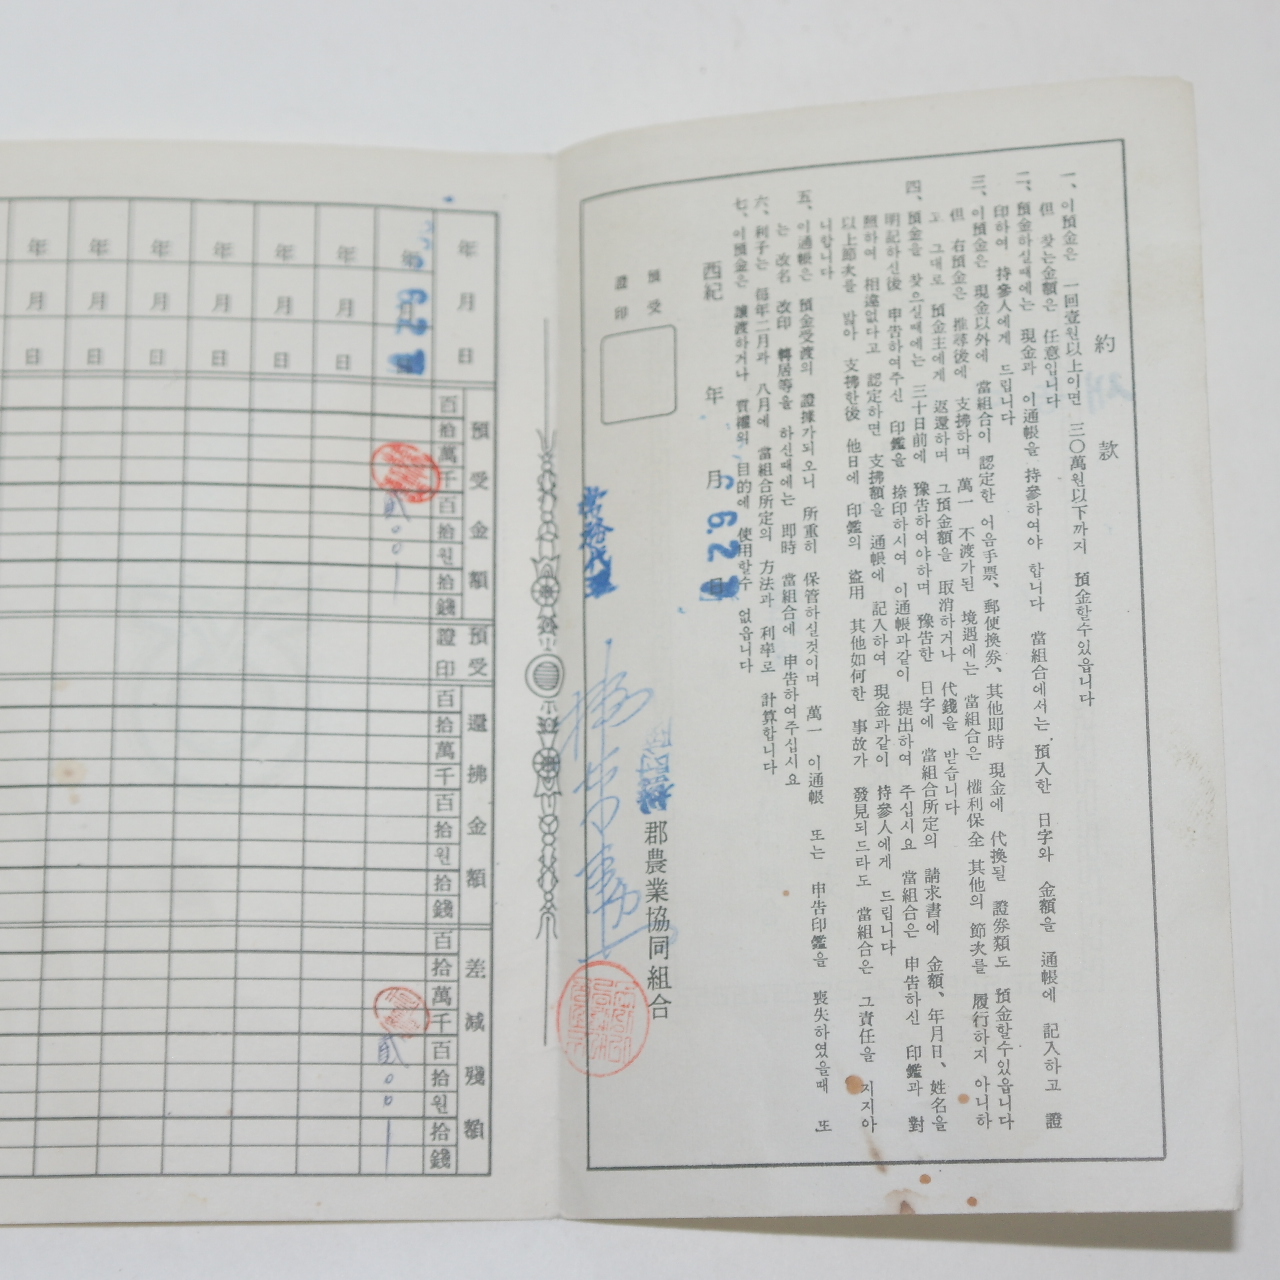 約款
一、이預金은 一回壹원以上이면 三〇萬원以下까지 預金할수있읍니다
但 찾는金額은 任意입니다
二、預金하실때에는 現金과 이通帳을 持參하여야 합니다 當組合에서는 預入한 日字와 金額을 通帳에 記入하고 證
印하여 持參人에게 드립니다
三、이預金은 現金以外에 當組合이 認定한 어음手票、郵便換券、其他即時 現金에 代換될 證券類도 預金할수있읍니다
但 右預金은 推尋後에 支拂하며 萬一 不渡가된 境遇에는 當組合은 權利保全 其他의 節次를 履行하지 아니하
고 그대로 預金主에게 返還하며 그預金額을 取消하거나 代錢을 받습니다
四、預金을 찾으실때에는 三十日前에 豫告하여야하며 豫告한 日字에 當組合所定의 請求書에 金額、年月日、姓名을
明記하신後 申告하여주신 印鑑을 捺印하시여 이通帳과같이 提出하여 주십시요 當組合은 申告하신 印鑑과 對
照하여 相違없다고 認定하면 支拂額을 通帳에 記入하여 現金과같이 持參人에게 드립니다
以上節次를 밟아 支拂한後 他日에 印鑑의 盜用 其他如何한 事故가 發見되드라도 當組合은 그責任을 지지아
니합니다
五、이通帳은 預金受渡의 證據가되오니 所重히 保管하실것이며 萬一 이通帳 또는 申告印鑑을 喪失하였을때 또
는 改名 改印 轉居等을 하신때에는 即時 當組合에 申告하여주십시요
六、利子는 每年二月과 八月에 當組合所定의 方法과 利率로 計算합니다
七、이預金은 讓渡하거나 質權의 目的에 使用할수 없읍니다
西紀 年 月 日
6 6.2
預受
證印
郡農業協同組合
年月日
預受金額
百拾萬千百拾원拾錢
預受
證印
還拂金額
百拾萬千百拾원拾錢
差減殘額
百拾萬千百拾원拾錢
年月日
62
貳00
貳00
年月日
年月日
年月日
年月日
年月日
年月日